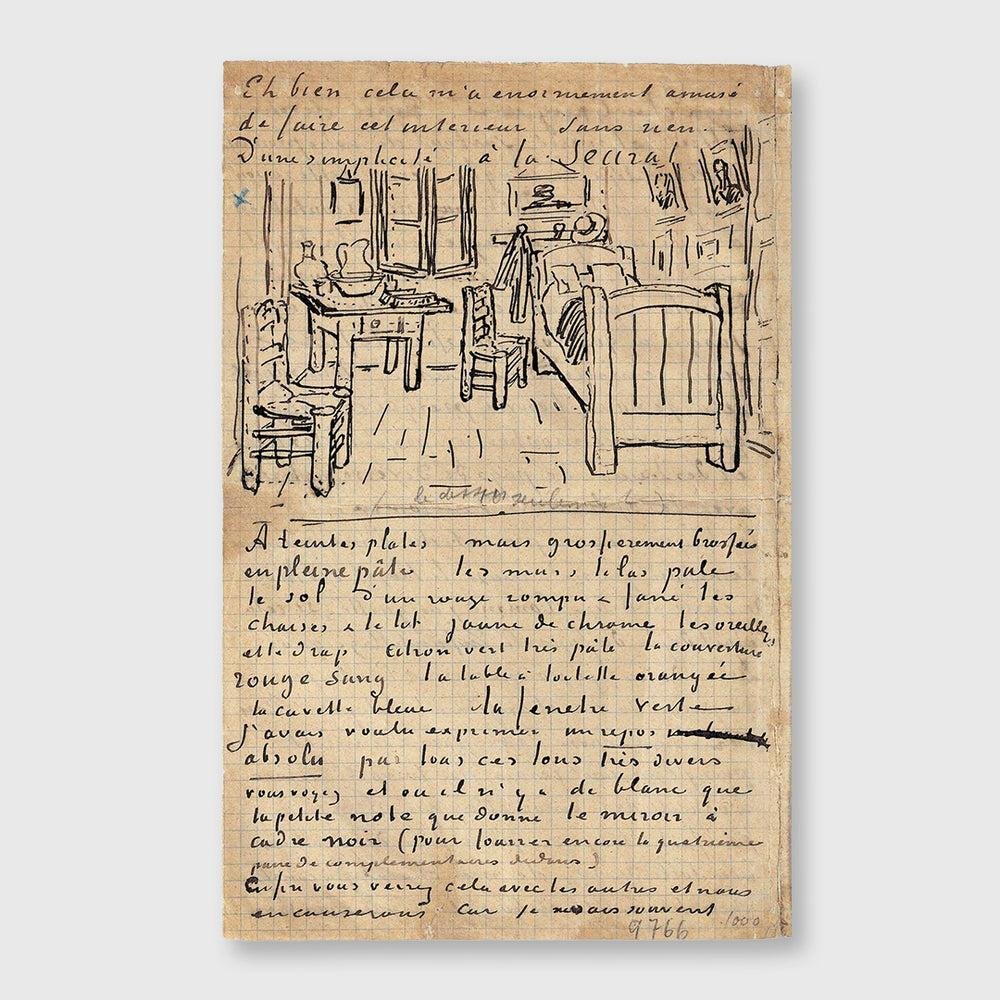 Eh bien cela m'a enormement amusé
de faire cet interieur sans rien.
D'une simplicité à la Seurat
(le dessin seulement)
À teintes plates mais grossierement brossées
en pleine pâte les murs lilas pale
le sol d'un rouge rompu & fané les
chaises & le lit jaune de chrome les oreillers
et le drap citron vert très pâle la couverture
rouge sang la table à toilette orangée
la cuvette bleue la fenetre verte
J'avais voulu exprimer un repos
absolu par tous ces tons très divers
vous voyez et ou il n'y a de blanc que
la petite note que donne le miroir à
cadre noir (pour fourrer encore la quatrième
paire de complementaires dedans)
Enfin vous verrez cela avec les autres et nous
en causerons car je ne sais souvent
9766 1000